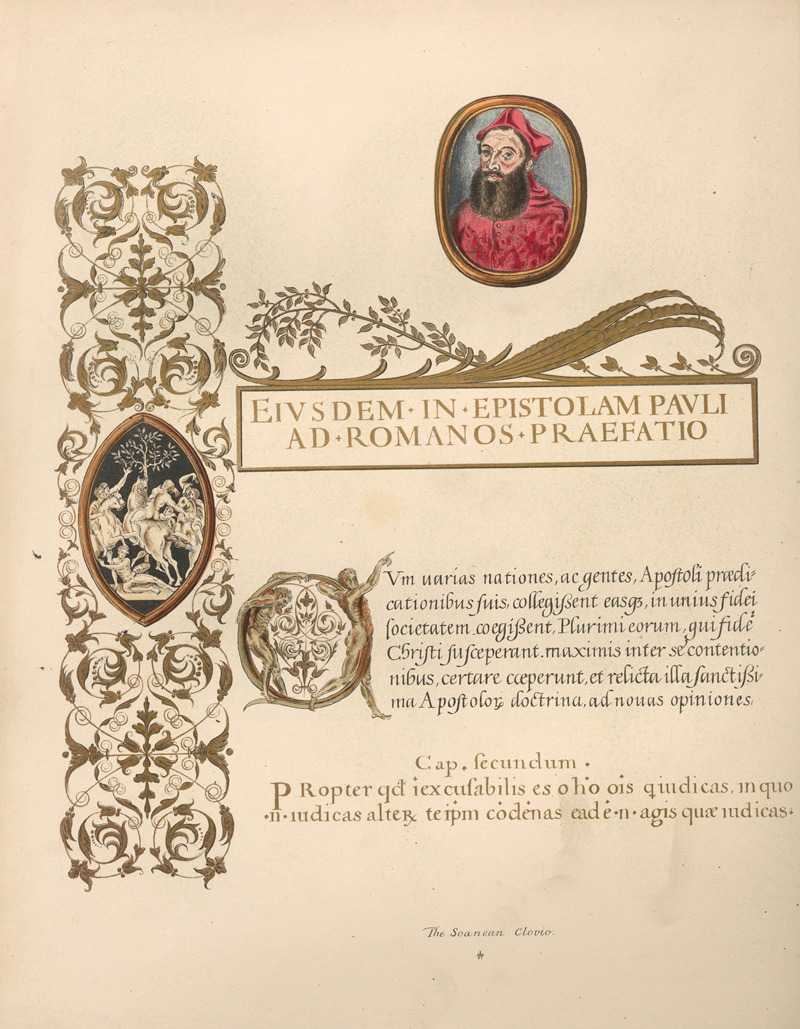 EIVSDEM · IN · EPISTOLAM PAVLI
AD · ROMANOS · PRAEFATIO
CVm uarias nationes, ac gentes, Apoſtoli prædi-
cationibus ſuis, collegiſsent easqꝫ, in unius fidei
ſocietatem coegiſsent, Plurimi eorum, qui fidē
Chriſti ſuſceperant. maximis inter se contentio-
nibus, certare cœperunt, et relicta illa ſanctiſsi-
ma Apoſtoloꝝ doctrina, ad nouas opiniones,
Cap. ſecundum .
PRopter qd̄ īexcuſabilis es o hō ōis q iudicas, in quo
·n̄· iudicas alteꝝ teip̄m cōdēnas eadē ·n̄· agis quæ iudicas.
The Soanean Clovio.